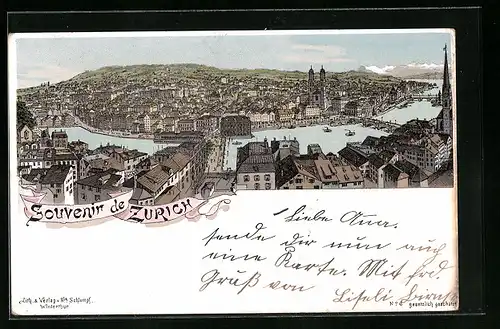 Souvenir de Zurich
Liebe Ana.
sende dir nun auch
eine Karte. Mit
Gruß von Liseli
Lith. & Verlag v. Wm Schlumpf
Winterthur
No 74 gesetzlich geschützt